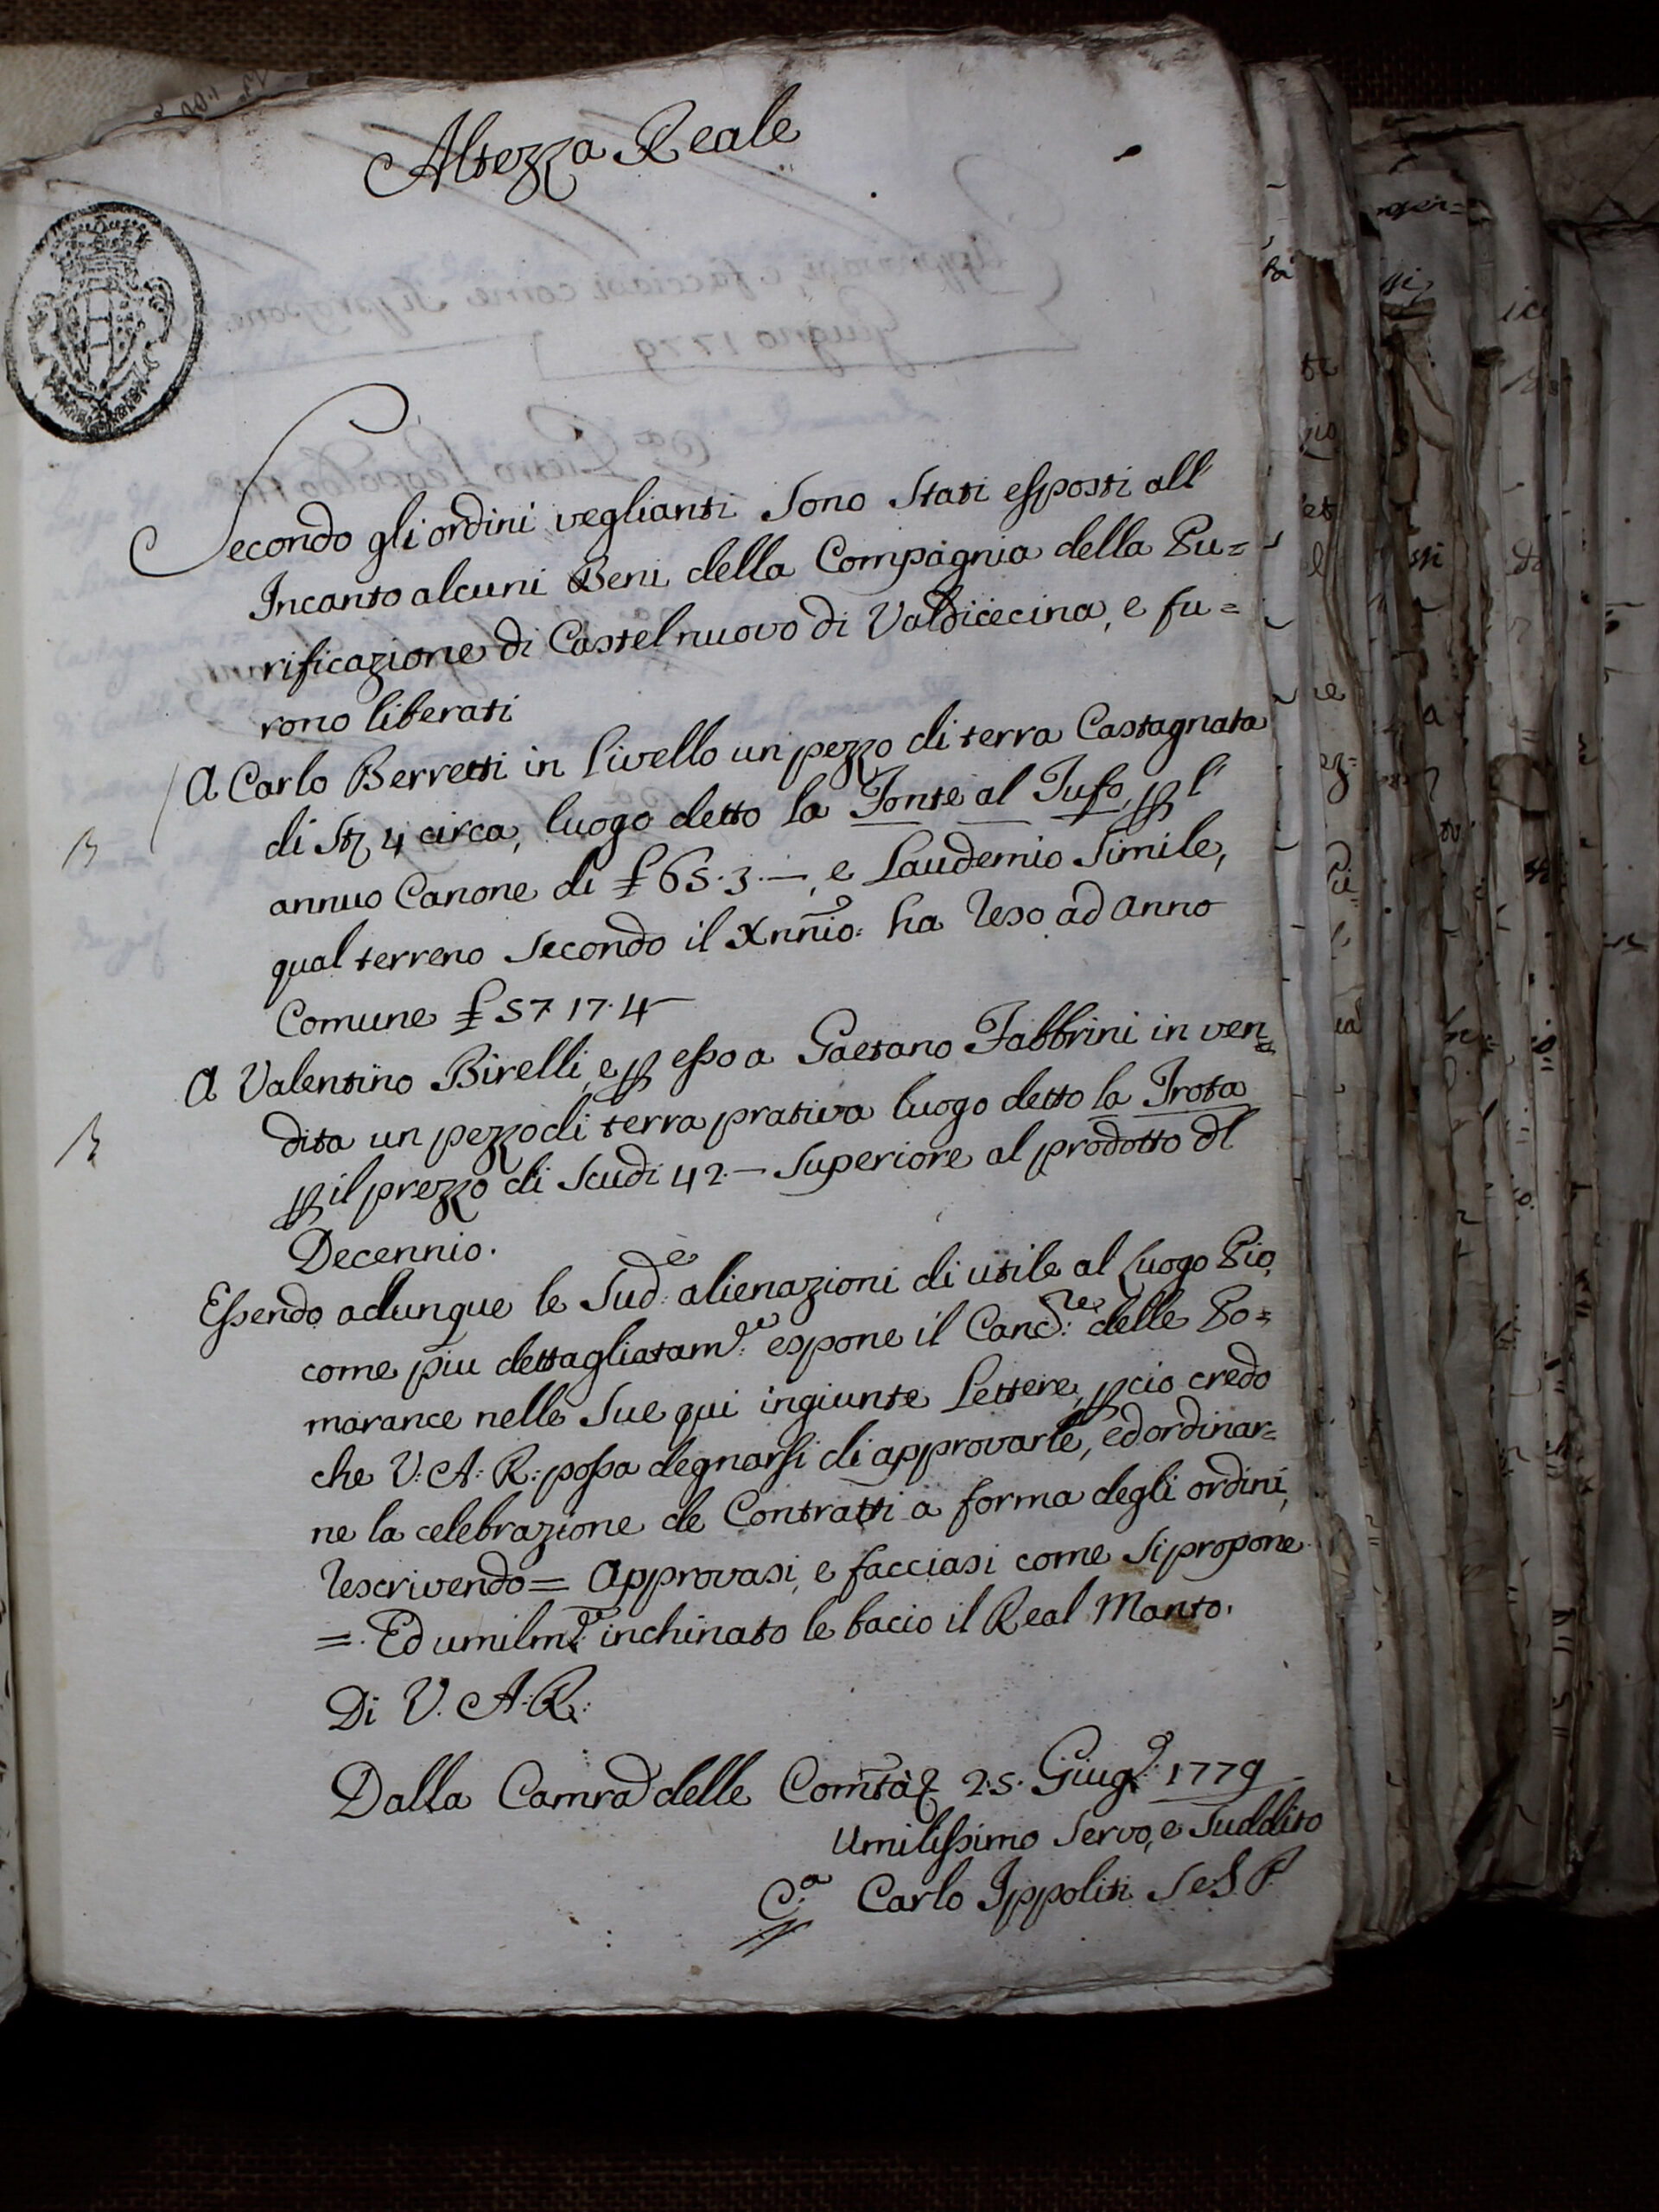 Altezza Reale
Secondo gli ordini veglianti sono stati esposti all'
Incanto alcuni Beni della Compagnia della Pu=
rificazione di Castelnuovo di Valdicecina, e fu=
rono liberati
A Carlo Berretti in Livello un pezzo di terra Castagnata
di St: 4 circa, luogo detto la Fonte al Tufo, p l'
annuo Canone di £ 65.3.—, e Laudemio simile,
qual terreno secondo il Xnnio: ha reso ad anno
Comune £ 57 17.4—
A Valentino Birelli, e p esso a Gaetano Fabbrini in ven=
dita un pezzo di terra prativa luogo detto la Trota
p il prezzo di Scudi 42.— superiore al prodotto dl
Decennio.
Essendo adunque le Sud:e alienazioni di utile al Luogo Pio,
come più dettagliatam:te espone il Canc:re delle Po=
marance nelle sue qui ingiunte Lettere, p cio credo
che V: A: R: possa degnarsi di approvarle, ed ordinar=
ne la celebrazione de Contratti a forma degli ordini,
rescrivendo = Approvasi, e facciasi come si propone
=. Ed umilm:te inchinato le bacio il Real Manto.
Di V. A: R:
Dalla Camra delle Comtà 25. Giug:o 1779
Umilissimo Servo, e Suddito
C:a Carlo Ippoliti S e S. P.